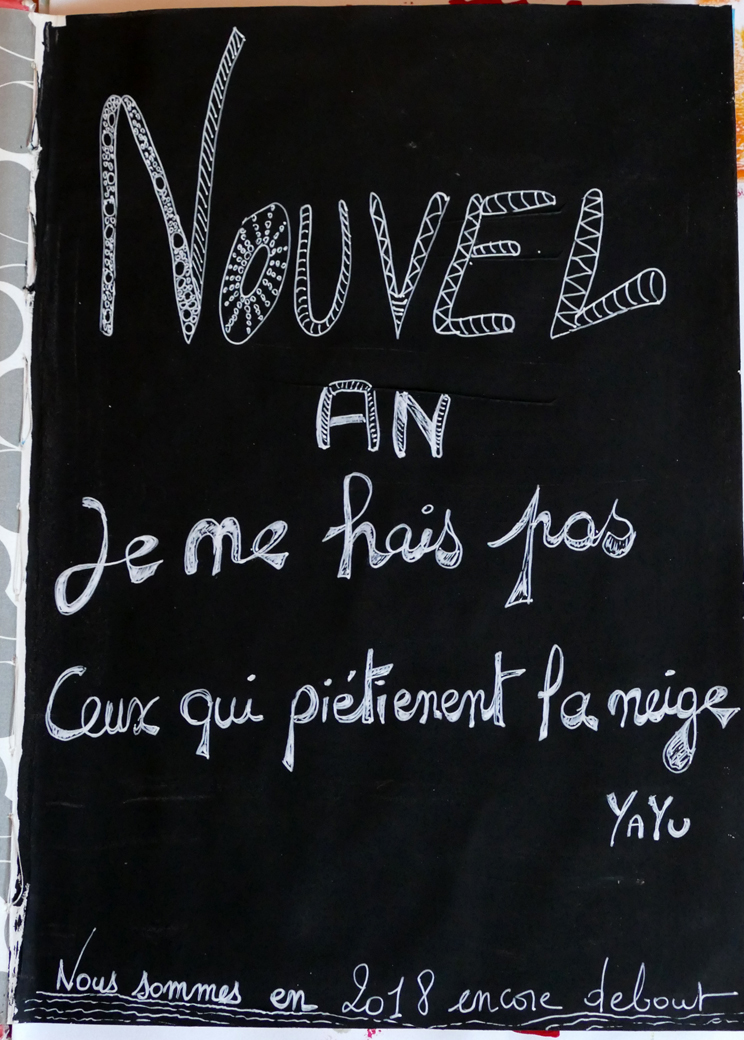 NOUVEL
AN
Je me hais pas
Ceux qui piétienent la neige
YAYU
Nous sommes en 2018 encore debout